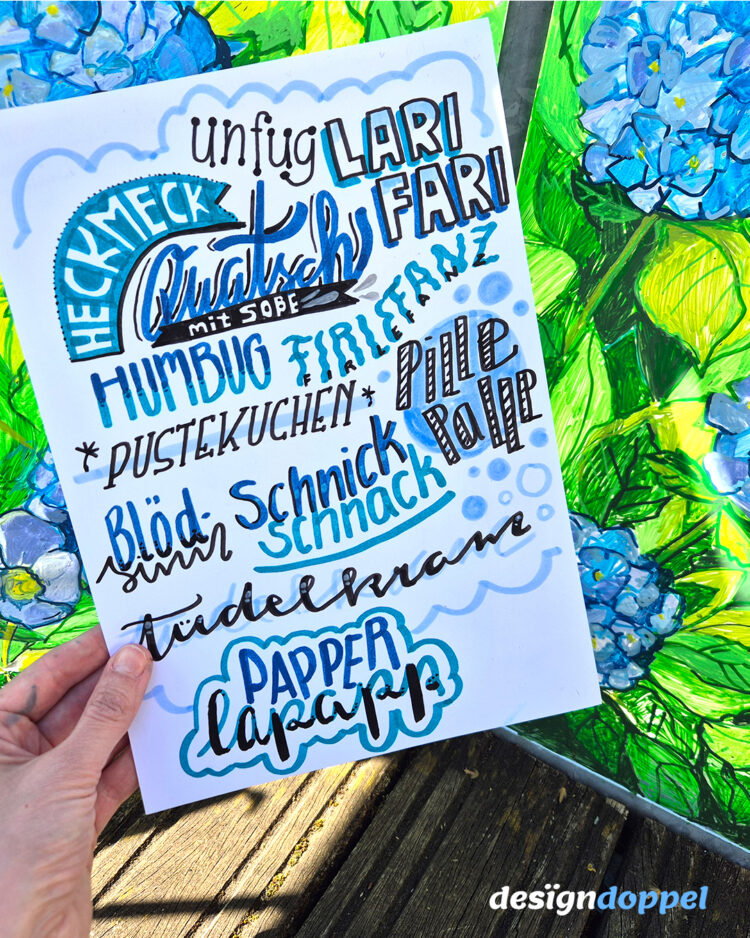 unfug
LARI
FARI
HECKMECK
Quatsch
mit SOßE
HUMBUG
FIRLEFANZ
FIRLEFANZ
*PUSTEKUCHEN*
Pille
Palle
Blöd-
sinn
Schnick
Schnack
tüdelkram
PAPPER
lapapp
designdoppel